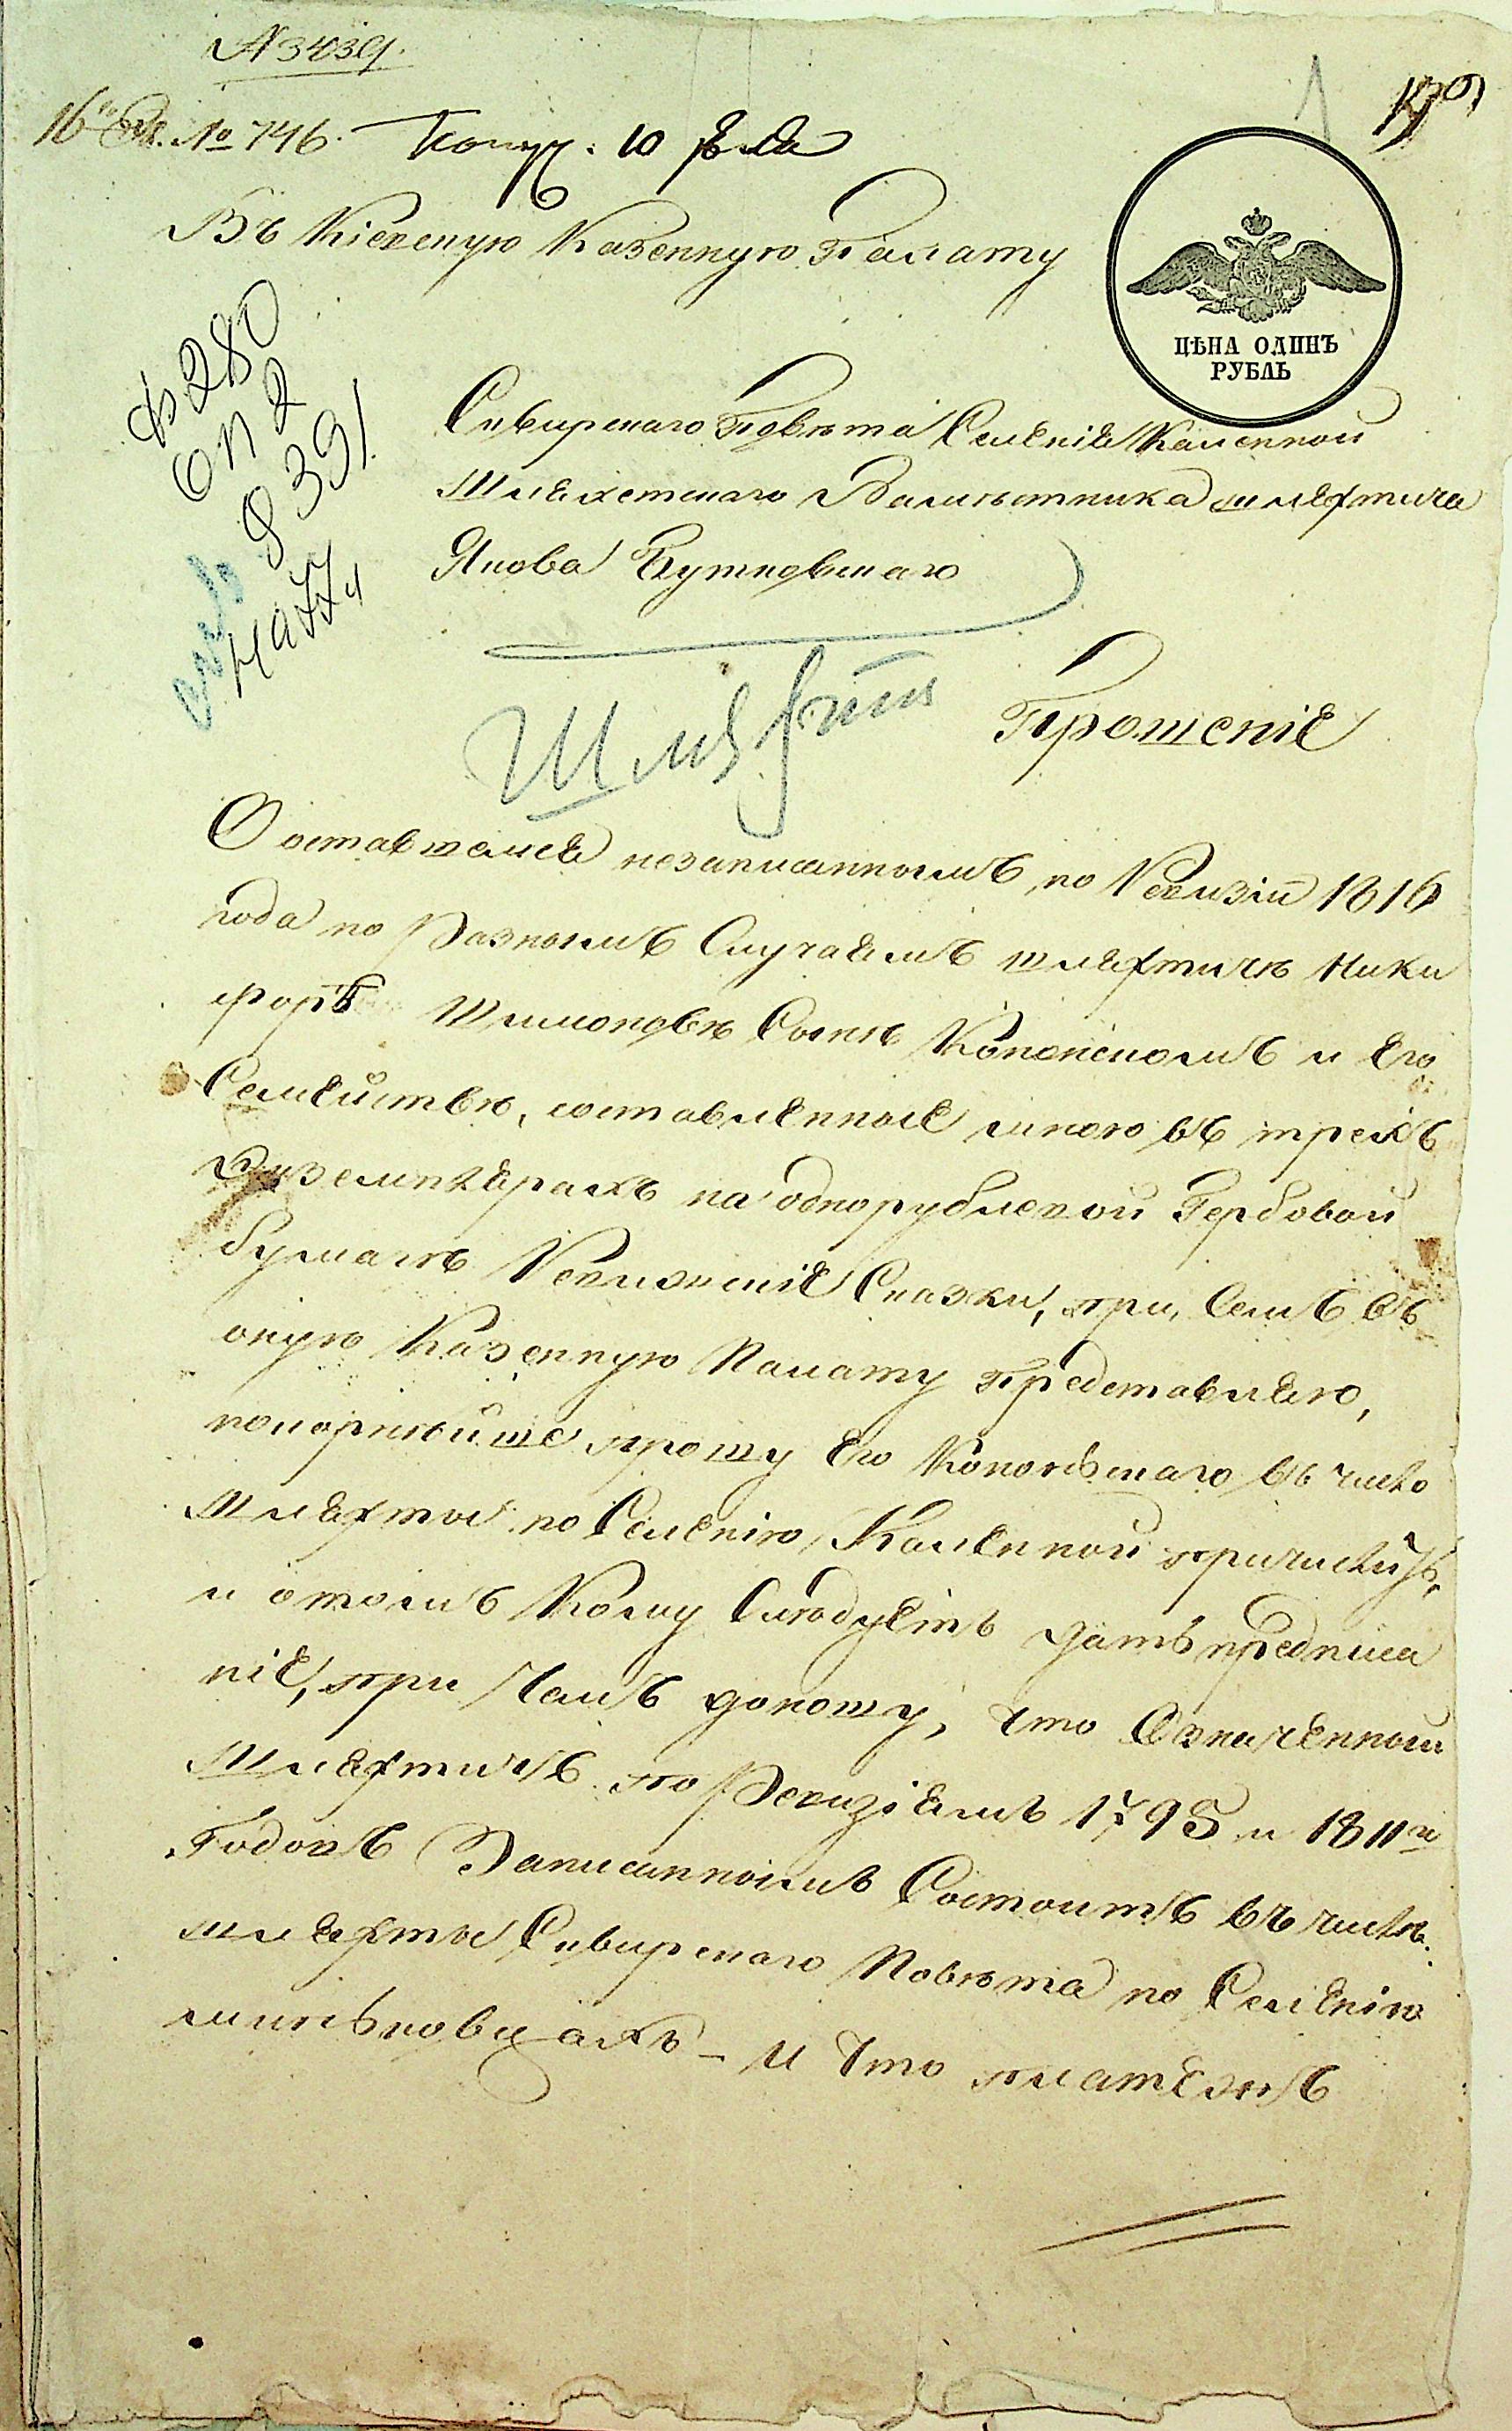 № 3439.
№ 746. Получ. 10
Въ Кіевскую Казенную Палату
Ф 280
оп 2
д 391
ЦѢНА ОДИНЪ
РУБЛЬ
Сквирскаго Повѣта Селенія Каменной
Шляхетскаго Намѣстника шляхтича
Якова Бутковскаго
Шляхта
Прошеніе
О оставшемся незаписаннымъ по Ревизіи 1816
года по Разнымъ Случаямъ шляхтичѣ Ники
форѣ Шимоновѣ Сынѣ Кононскомъ и Его
Семействѣ, составленные мною въ трехъ
Экземплярахъ на однорублевой Гербовой
бумагѣ Ревизскіе Сказки, при Семъ въ
оную Казенную Палату Представляю,
покорнѣйше прошу Его Кононскаго въ число
Шляхты по Селенію Каменной причислить,
и отомъ Кому Слѣдуетъ дать предписа
ніе, при Чемъ доношу, что Означенной
Шляхтичъ по Ревизіямъ 1795 и 1811 и
Годовъ Записаннымъ Состоитъ въ числѣ
шляхты Сквирскаго Повѣта по Селенію
и что платежъ